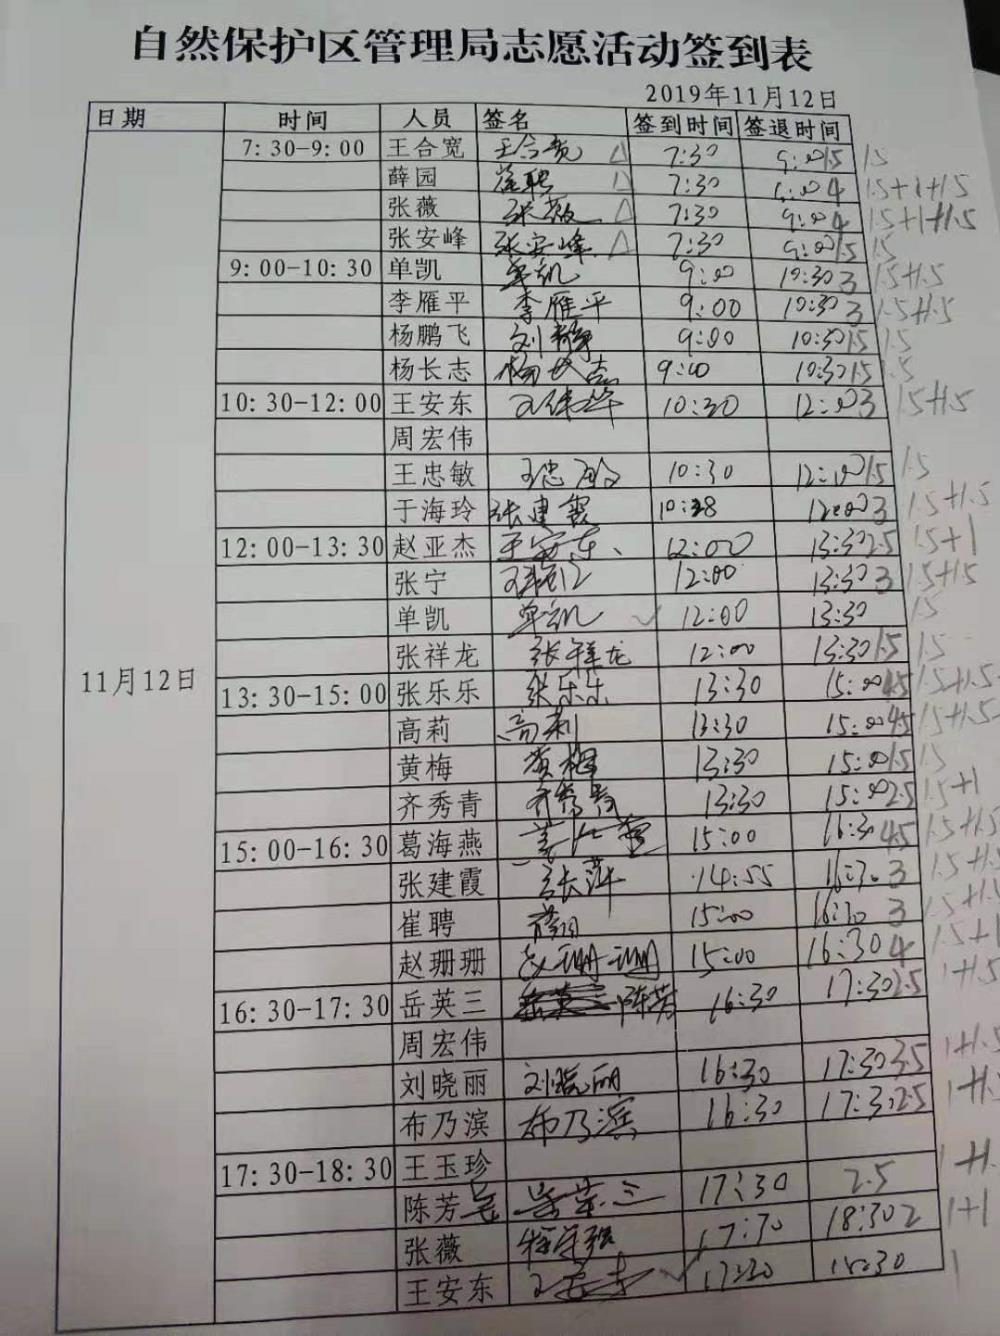 自然保护区管理局志愿活动签到表
2019年11月12日
日期 时间 人员 签名 签到时间 签退时间
7:30-9:00 王合宽 王合宽 △ 7:30 9:00 1.5 1.5
薛园 崔聘 △ 7:30 9:00 4 1.5+1+1.5
张薇 张薇 △ 7:30 9:00 4 1.5+1+1.5
张安峰 张安峰 △ 7:30 9:00 1.5 1.5
9:00-10:30 单凯 单凯 9:00 10:30 3 1.5+1.5
李雁平 李雁平 9:00 10:30 3 1.5+1.5
杨鹏飞 刘静 9:00 10:30 1.5 1.5
杨长志 杨长志 9:00 10:30 1.5 1.5
10:30-12:00 王安东 10:30 12:00 3 1.5+1.5
周宏伟
王忠敏 王忠敏 10:30 12:00 1.5 1.5
于海玲 张建霞 10:28 12:00 3 1.5+1.5
12:00-13:30 赵亚杰 王安东 12:00 13:30 2.5 1.5+1
张宁 12:00 13:30 3 1.5+1.5
单凯 单凯 ✓ 12:00 13:30 1.5
张祥龙 张祥龙 12:00 13:30 1.5 1.5
11月12日
13:30-15:00 张乐乐 张乐乐 13:30 15:00 4.5 1.5+1.5
高莉 高莉 13:30 15:00 4.5 1.5+1.5
黄梅 黄梅 13:30 15:00 1.5 1.5
齐秀青 齐秀青 13:30 15:00 2.5 1.5+1
15:00-16:30 葛海燕 15:00 16:30 4.5 1.5+1.5
张建霞 张萍 14:55 16:30 3 1.5+1.5
崔聘 薛园 15:00 16:30 3 1.5+1.5
赵珊珊 赵珊珊 15:00 16:30 4 1.5+1
16:30-17:30 岳英三 陈芳 16:30 17:30 2.5 1+1.5
周宏伟
刘晓丽 刘晓丽 16:30 17:30 3.5 1+1.5
布乃滨 布乃滨 16:30 17:30 2.5 1+1.
17:30-18:30 王玉珍
陈芳 岳英三 17:30 2.5 1+1.
张薇 17:30 18:30 2 1+1
王安东 王安东 ✓ 17:30 18:30 1